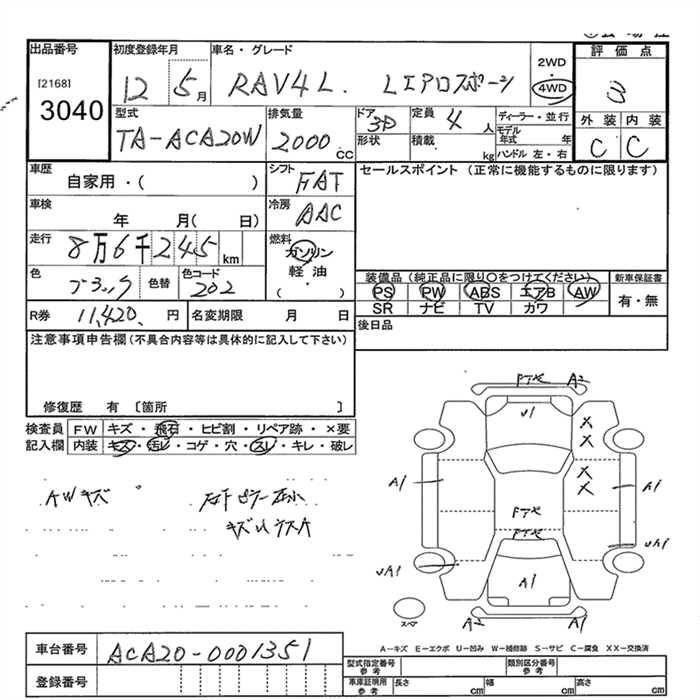 出品番号 初度登録年月 車名・グレード 2WD ・ 4WD 評価点
[2168]
3040
12 5月 RAV4 L. Lエアロスポーツ 3
型式 排気量 ドア 定員 ディーラー・並行 外装 内装
TA-ACA20W 2000 CC 3D 4人 モデル年式 年 C C
形状 積載 kg ハンドル 左・右
車歴 シフト セールスポイント (正常に機能するものに限ります)
自家用・( ) FAT
車検 冷房
年 月( 日) AAC
走行 8万6千245 km 燃料
ガソリン
軽油
( )
色 ブラック 色替 色コード 202
装備品 (純正品に限り○をつけてください) 新車保証書
PS PW ABS エアB AW 有・無
SR ナビ TV カワ
R券 11,420. 円 名変期限 月 日
後日品
注意事項申告欄 (不具合内容等は具体的に記入して下さい)
修復歴 有 〔箇所 〕
検査員 FW キズ・飛石・ヒビ割・リペア跡・×要
記入欄 内装 キズ・汚レ・コゲ・穴・スレ・キレ・破レ
AWキズ
キズUススA
A2
U1
A1
A1
A1
A2
A1
スペア
A-キズ E-エクボ U-凹み W-補修跡 S-サビ C-腐食 XX-交換済
車台番号 ACA20-0001351
型式指定番号 参考 類別区分番号 参考
登録番号
車庫証明用 参考 長さ cm 幅 cm 高さ cm